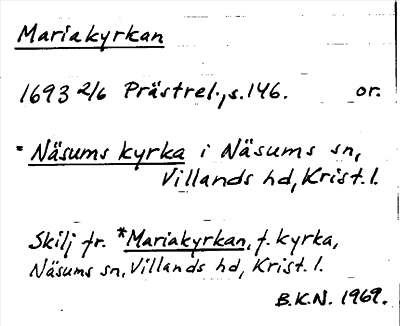 Mariakyrkan
1693 2/6 Prästrel., s. 146. or.
= Näsums kyrka i Näsums sn,
Villands hd, Krist. l.
Skilj fr. *Mariakyrkan, f. kyrka,
Näsums sn, Villands hd, Krist. l.
B.K.N. 1969.